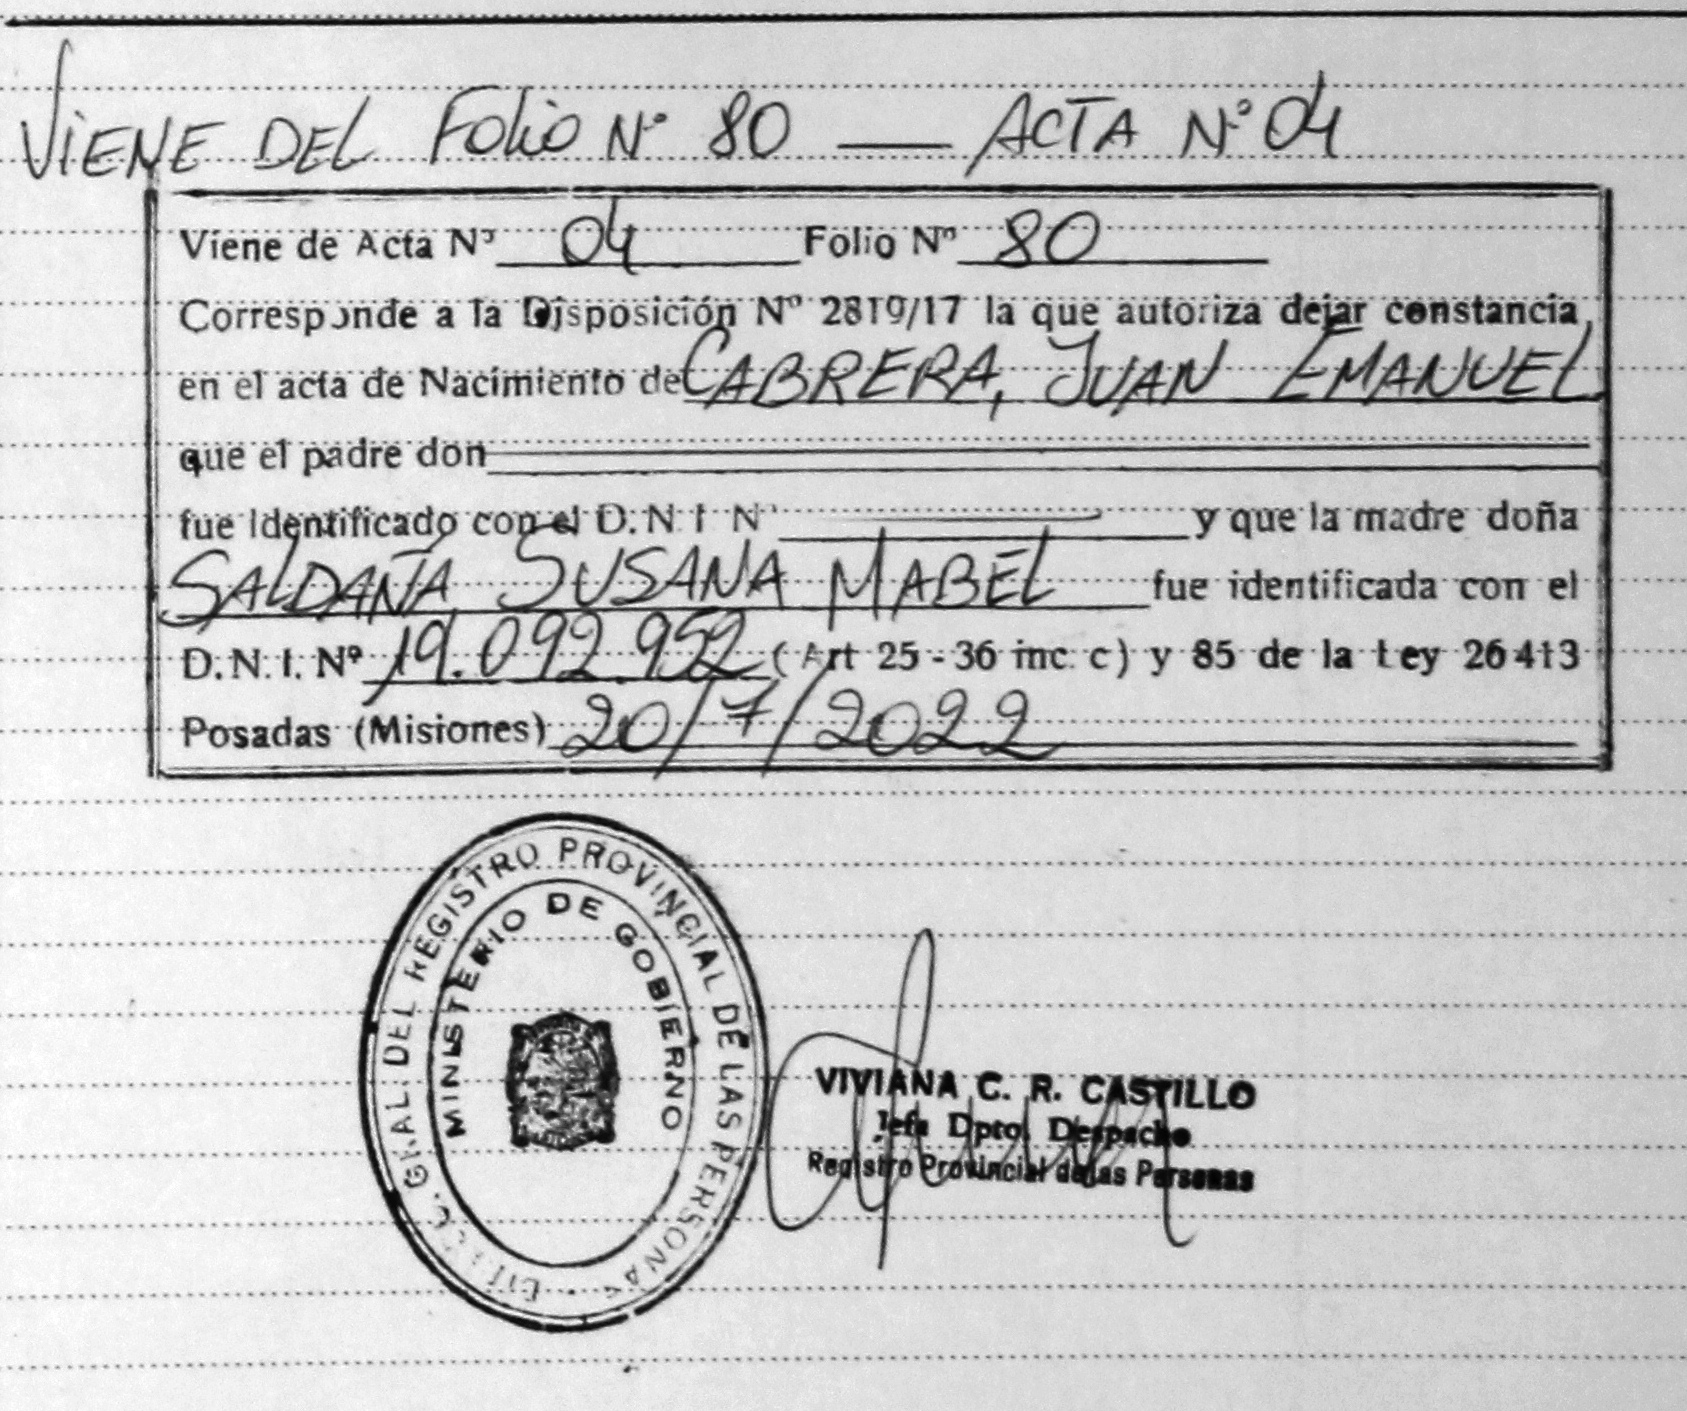 VIENE DEL FOLIO Nº 80 — ACTA Nº 04
Viene de Acta Nº 04 Folio Nº 80
Corresponde a la Disposición Nº 2819/17 la que autoriza dejar constancia
en el acta de Nacimiento de CABRERA, JUAN EMANUEL
que el padre don
fue identificado con el D.N.I Nº y que la madre doña
SALDAÑA, SUSANA MABEL fue identificada con el
D.N.I. Nº 19.092.952 (Art 25 - 36 inc c) y 85 de la Ley 26413
Posadas (Misiones) 20/7/2022
GRAL. DEL REGISTRO PROVINCIAL DE LAS PERSONAS
MINISTERIO DE GOBIERNO
VIVIANA C. R. CASTILLO
Jefa Dpto. Despacho
Registro Provincial de las Personas